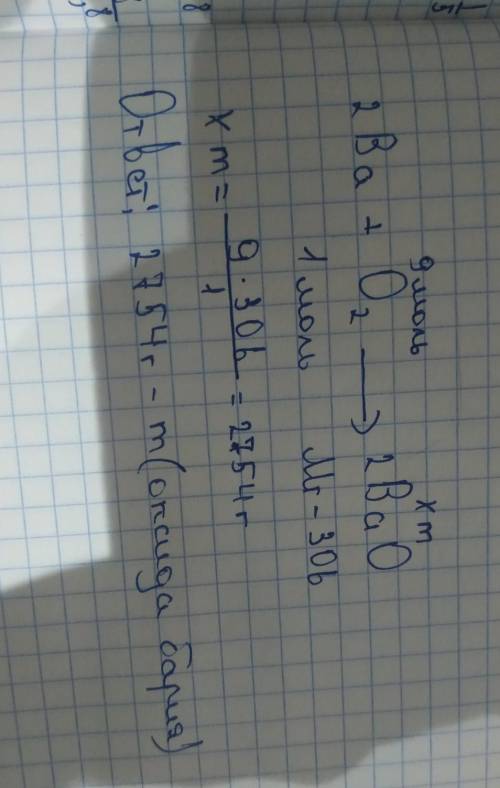 9 моль   x m
2Ba + O₂ ⟶ 2BaO
1 моль   Mr - 306
x m = 9 · 306 / 1 = 2754 г
Ответ: 2754 г - m (оксида бария)